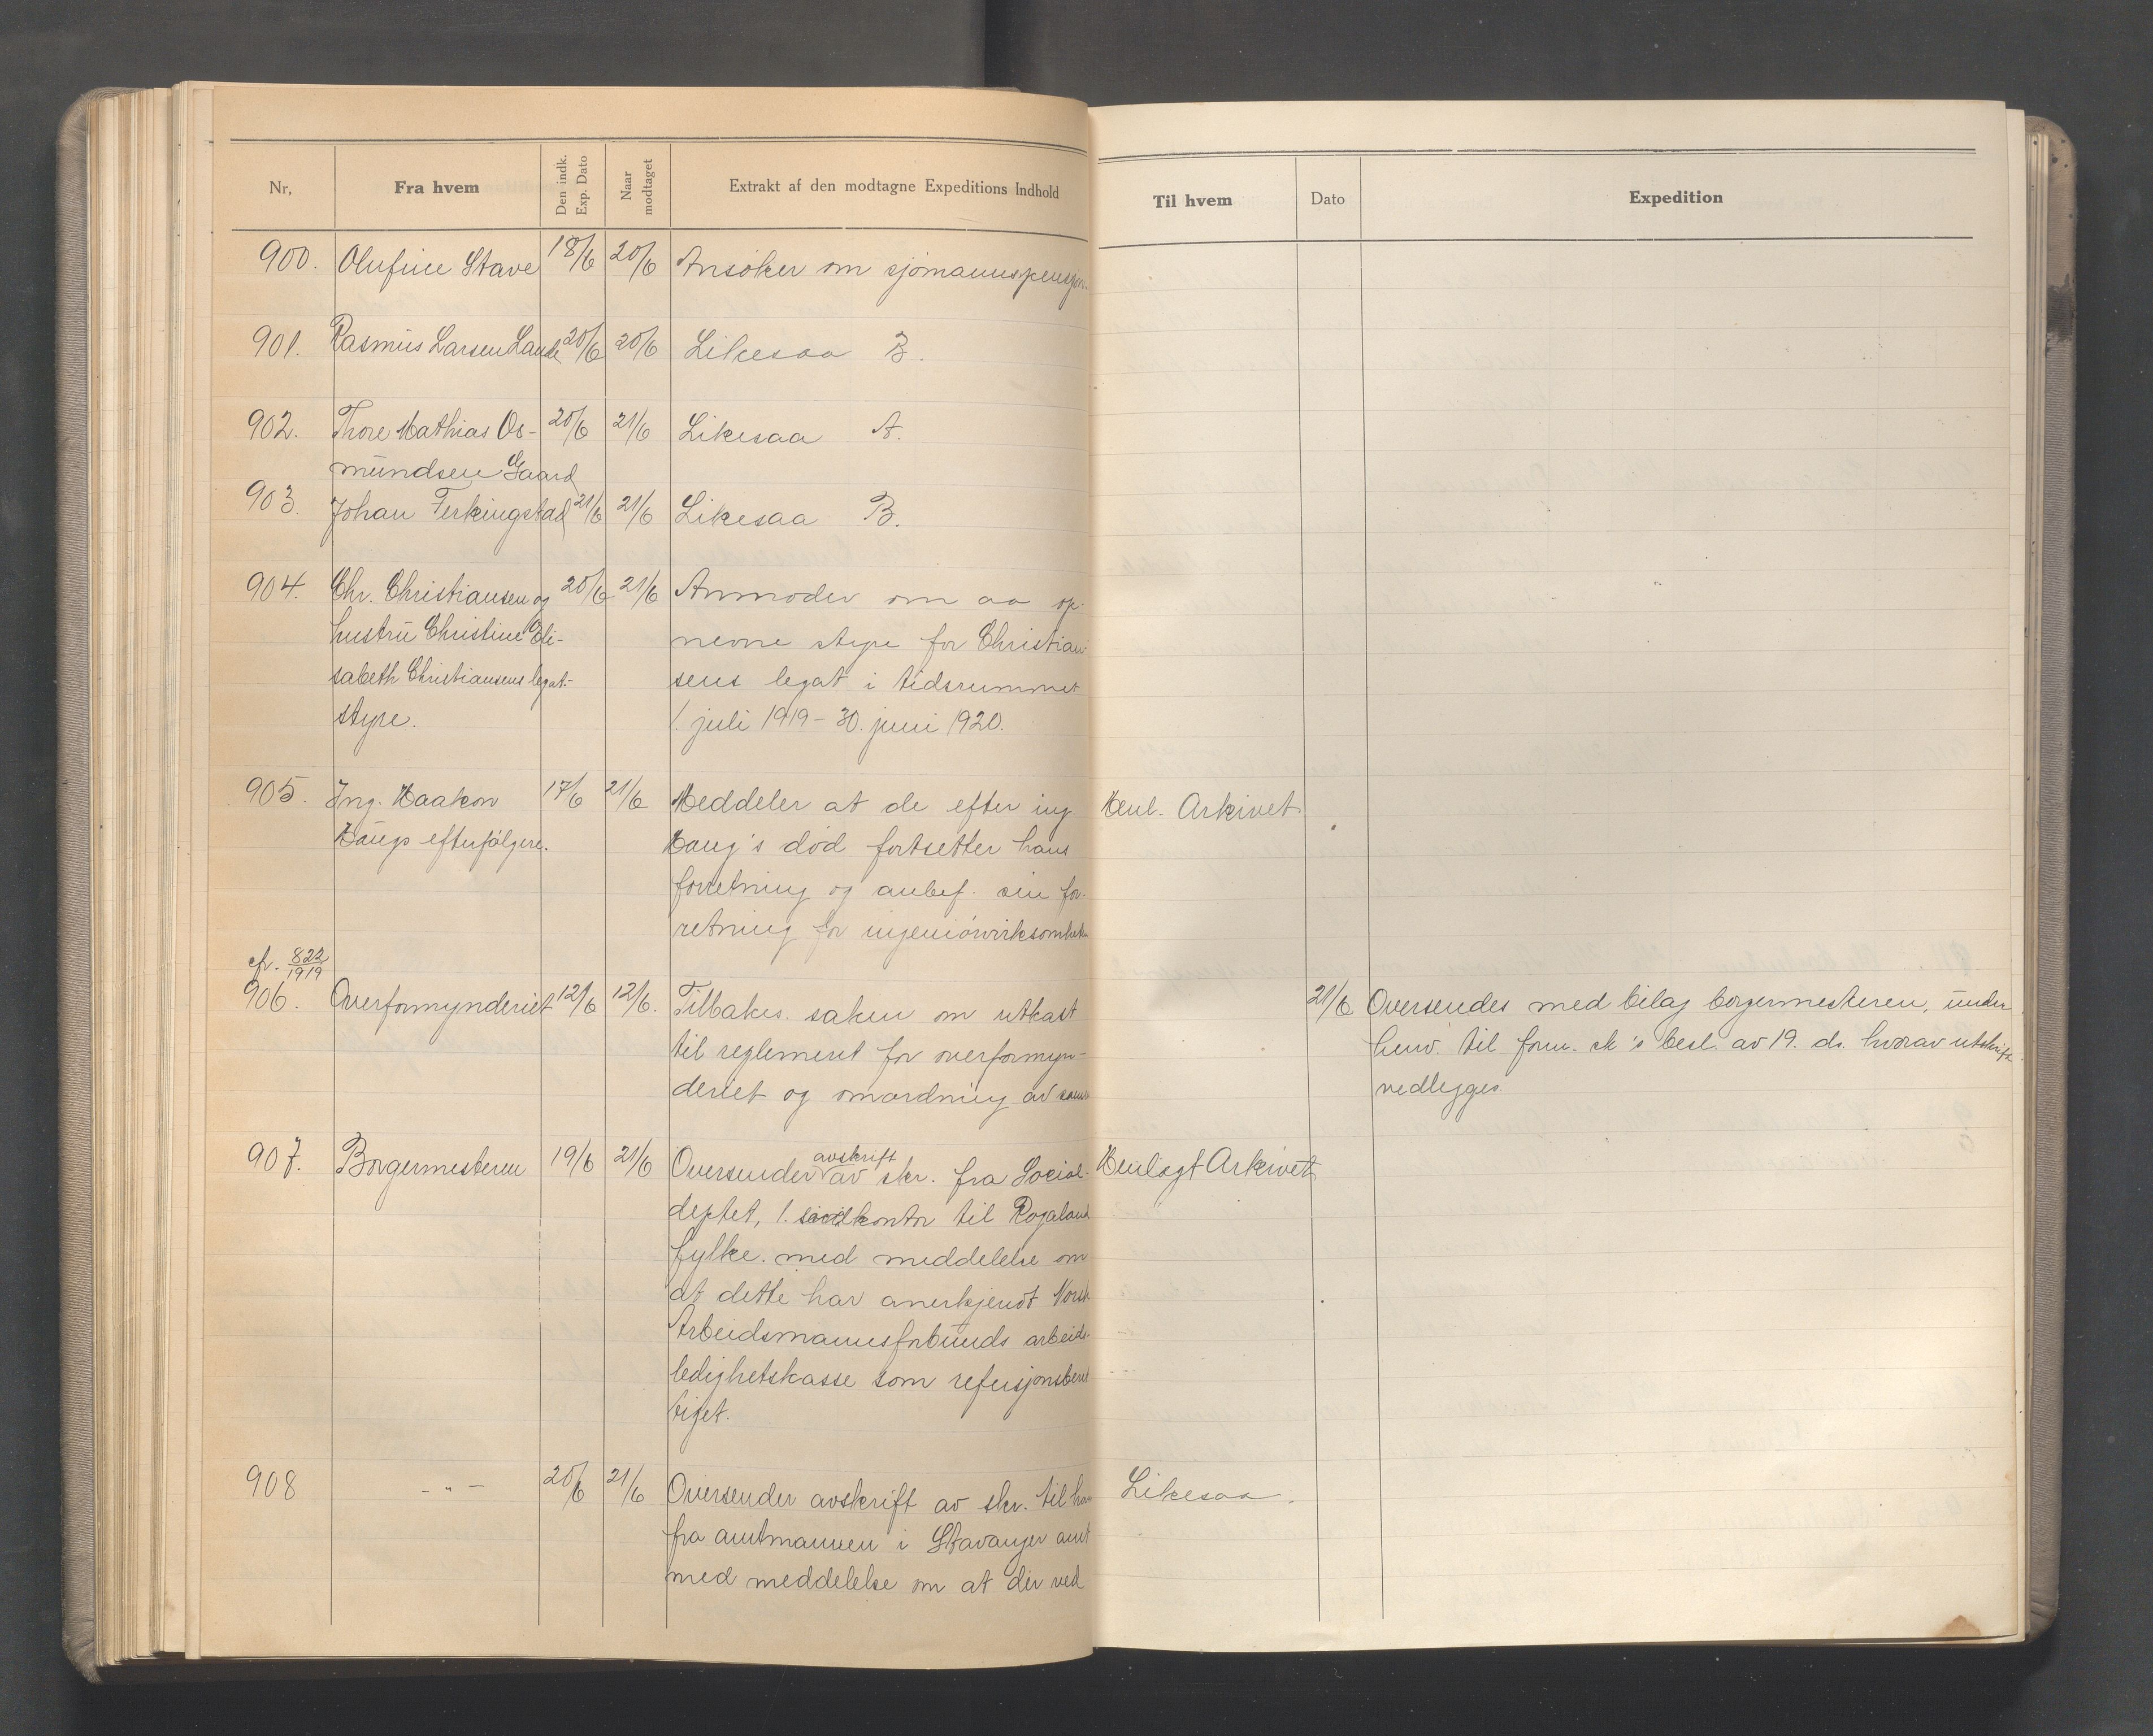 Nr.
Fra hvem
Den indk. Exp. Dato
Naar modtaget
Extrakt af den modtagne Expeditions Indhold
Til hvem
Dato
Expedition
900. Olufine Stave 18/6 20/6 Ansøker om sjömannspensjon.
901. Rasmus Larsen Lande 20/6 20/6 Likesaa B.
902. Thore Mathias Os- 20/6 21/6 Likesaa A.
mundsen Gaard
903. Johan Ferkingstad 21/6 21/6 Likesaa B.
904. Chr. Christiansen og 20/6 21/6 Anmoder om aa op-
hustru Christine Eli- nevne styre for Christian-
sabeth Christiansens legat- sens legat i tidsrummet
styre. 1. juli 1919 - 30. juni 1920.
905. Ing. Haakon 17/6 21/6 Meddeler at de efter ing. Henl. Arkivet.
Haugs efterfølgere. Haug's död fortsetter hans
forretning og anbef. sin for-
retning for ingeniörvirksomheten
cfr. 822/1919
906. Overformynderiet 12/6 12/6. Tilbakes. saken om utkast 21/6 Oversendes med bilag borgermesteren, under
til reglement for overformyn- henv. til form. sk's besl. av 19. ds. hvorav utskrift
deriet og omordning av samme vedlegges.
907. Borgermesteren 19/6 21/6 Oversender avskrift av skr. fra Social- Henlagt Arkivet
deptet, 1. sivilkontor til Rogaland
fylke. med meddelelse om
at dette har anerkjendt Norsk
Arbeidsmannsforbunds arbeids-
ledighetskasse som refusjonsberet-
tiget.
908 - " - 20/6 21/6 Oversender avskrift av skr. til ham Likesaa.
fra amtmannen i Stavanger amt
med meddelelse om at der ved